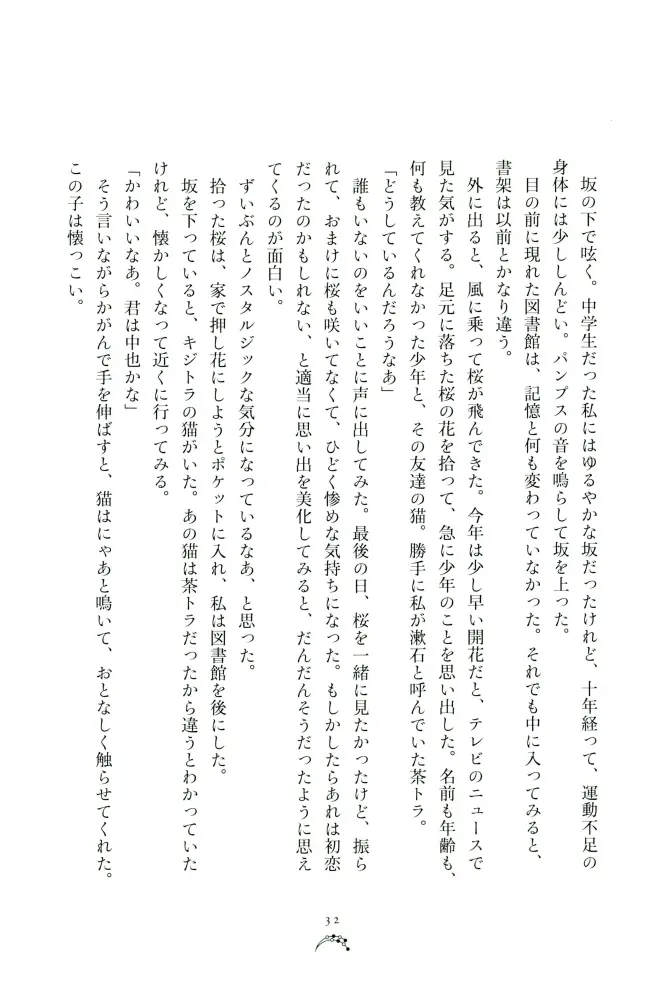 坂の下で呟く。中学生だった私にはゆるやかな坂だったけれど、十年経って、運動不足の
身体には少ししんどい。パンプスの音を鳴らして坂を上った。
目の前に現れた図書館は、記憶と何も変わっていなかった。それでも中に入ってみると、
書架は以前とかなり違う。
外に出ると、風に乗って桜が飛んできた。今年は少し早い開花だと、テレビのニュースで
見た気がする。足元に落ちた桜の花を拾って、急に少年のことを思い出した。名前も年齢も、
何も教えてくれなかった少年と、その友達の猫。勝手に私が漱石と呼んでいた茶トラ。
「どうしているんだろうなあ」
誰もいないのをいいことに声に出してみた。最後の日、桜を一緒に見たかったけど、振ら
れて、おまけに桜も咲いてなくて、ひどく惨めな気持ちになった。もしかしたらあれは初恋
だったのかもしれない、と適当に思い出を美化してみると、だんだんそうだったように思え
てくるのが面白い。
ずいぶんとノスタルジックな気分になっているなあ、と思った。
拾った桜は、家で押し花にしようとポケットに入れ、私は図書館を後にした。
坂を下っていると、キジトラの猫がいた。あの猫は茶トラだったから違うとわかっていた
けれど、懐かしくなって近くに行ってみる。
「かわいいなあ。君は中也かな」
そう言いながらかがんで手を伸ばすと、猫はにゃあと鳴いて、おとなしく触らせてくれた。
この子は懐っこい。
32